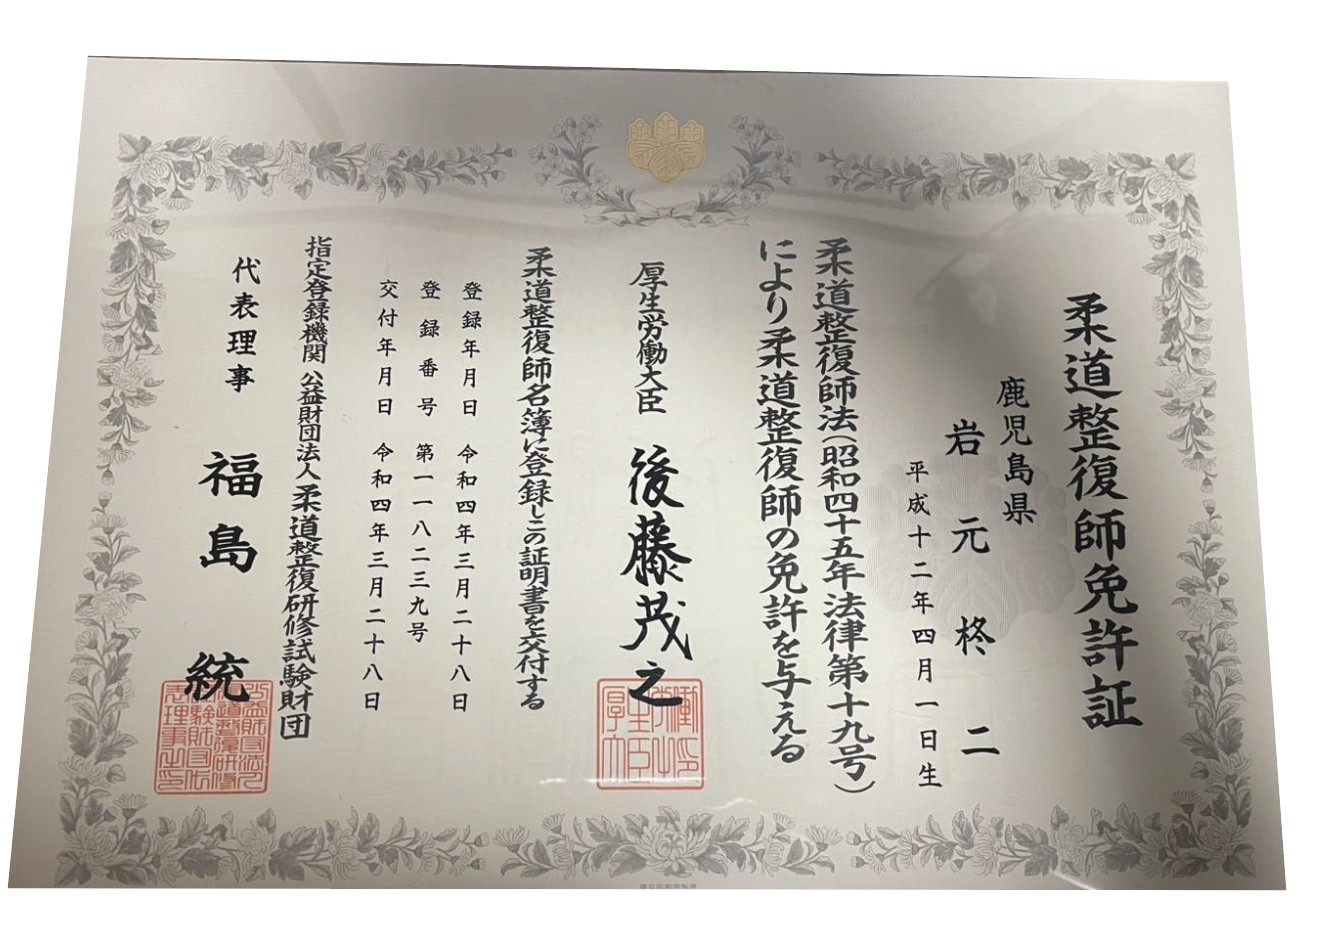 柔道整復師免許証
鹿児島県
岩元柊二
平成十二年四月一日生
柔道整復師法(昭和四十五年法律第十九号)
により柔道整復師の免許を与える
厚生労働大臣 後藤茂之
柔道整復師名簿に登録しこの証明書を交付する
登録年月日 令和四年三月二十八日
登録番号 第一一八二三九号
交付年月日 令和四年三月二十八日
指定登録機関 公益財団法人 柔道整復研修試験財団
代表理事 福島統